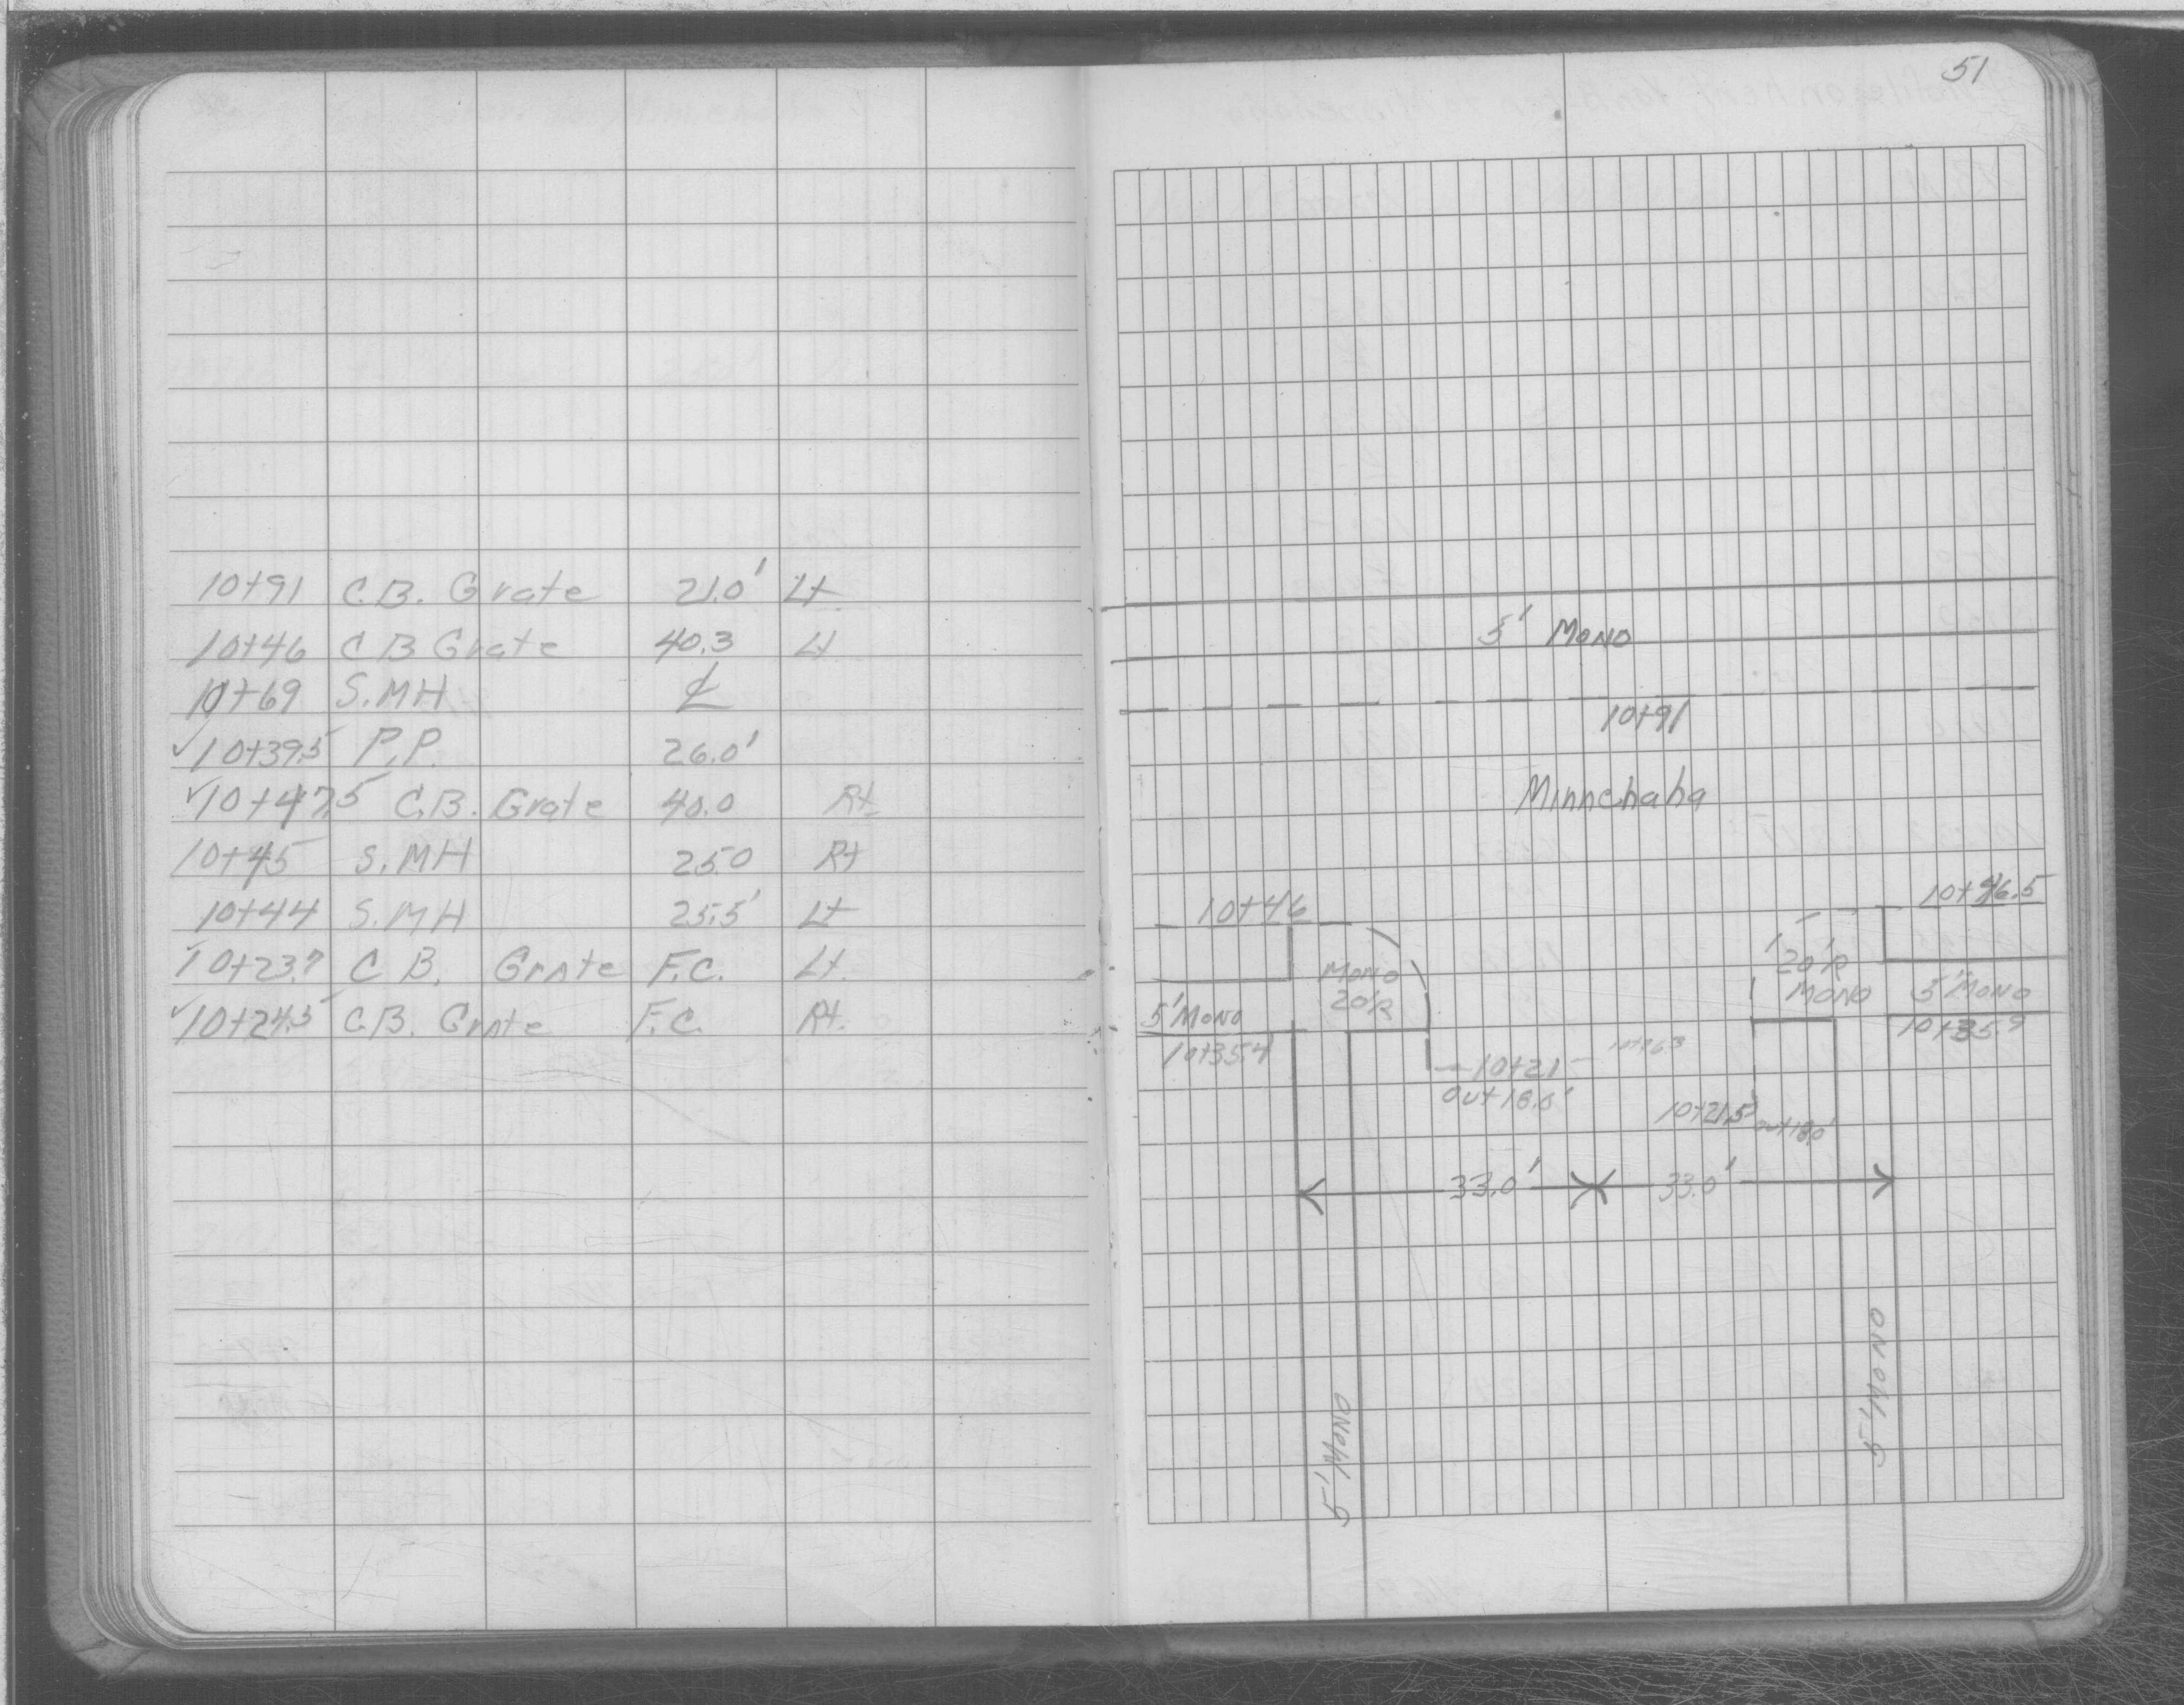 10+91 C.B. Grate 21.0' Lt
10+46 C B Grate 40.3 Lt
10+69 S.MH ℄
✓10+39.5 P.P. 26.0'
✓10+47.5 C.B. Grate 40.0 Rt
10+45 S.MH 25.0 Rt
10+44 S.MH 25.5' Lt
✓10+23.7 C B. Grate F.C. Lt.
✓10+24.5 C.B. Grate F.C. Rt.
51
5' MONO
10+91
Minnehaha
10+46
10+46.5
MONO
20'R
20'R
MONO
5' MONO
5' MONO
10+35.4
10+35.9
10+21
out 18.0'
10+21.5
out 18.0'
33.0' 33.0'
5' MONO
5' MONO